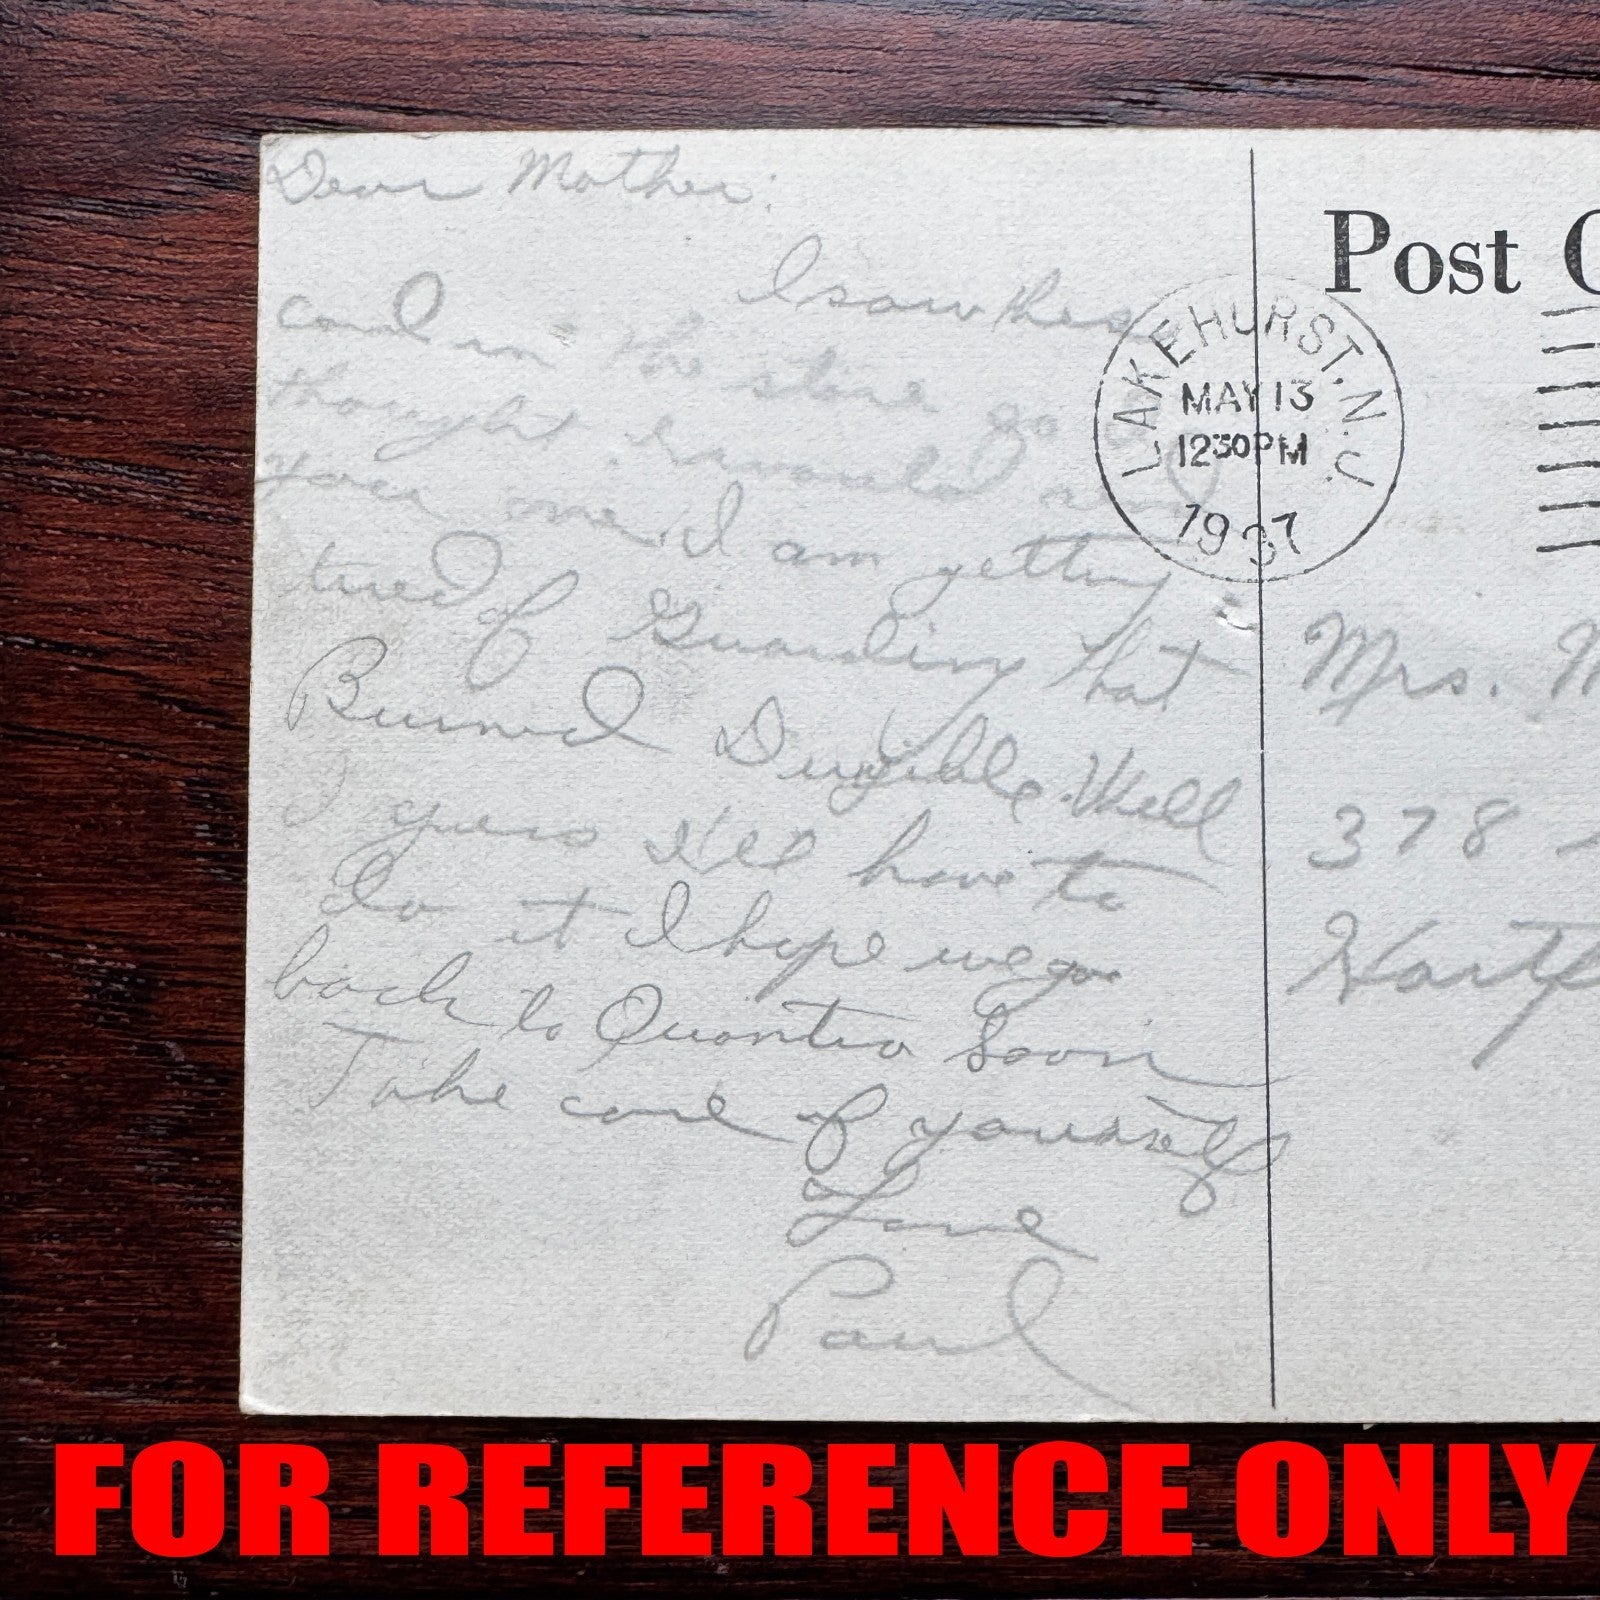 Dear Mother:
I saw these
card in the store so I
thought I would send
you one. I am getting
tired of Guarding that
Burned Dirigible. Well
I guess I'll have to
do it I hope we go
back to Quantico Soon
Take care of yourself
Love
Paul
Post C
LAKEHURST, N.J.
MAY 13
1230PM
1937
Mrs. M
378
Hartf
FOR REFERENCE ONLY